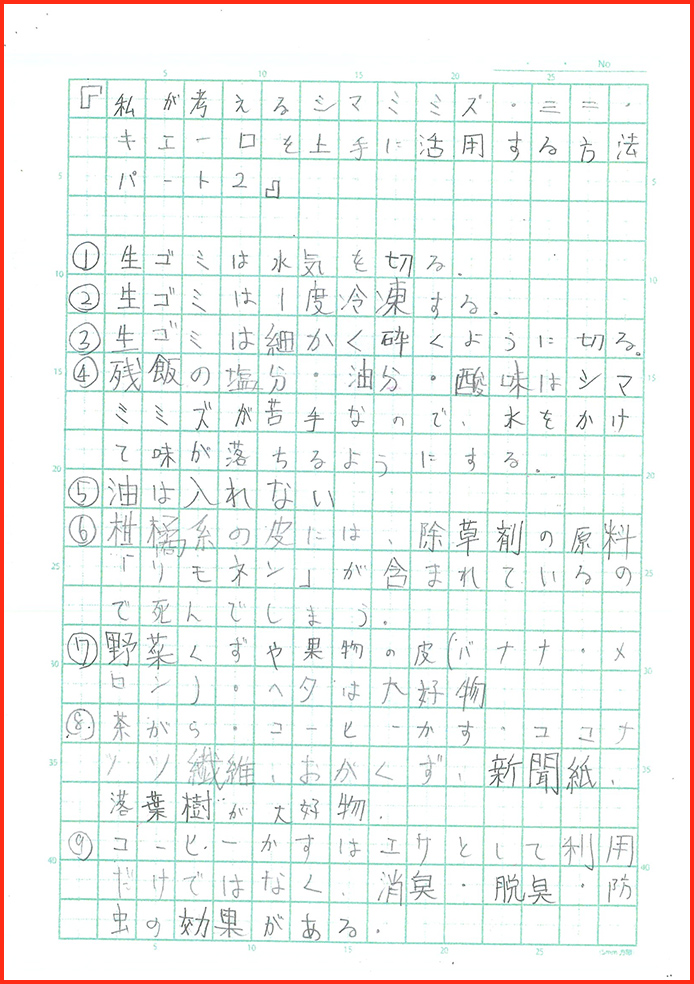 No
5 10 15 20 25
『私が考えるシマミミズ・ミニ・
キエーロを上手に活用する方法
パート2』
①生ゴミは水気を切る.
②生ゴミは1度冷凍する.
③生ゴミは細かく砕くように切る。
④残飯の塩分・油分・酸味はシマ
ミミズが苦手なので、水をかけ
て味が落ちるようにする.
⑤油は入れない
⑥柑橘系の皮には、除草剤の原料
「リモネン」が含まれているの
で死んでしまう.
⑦野菜くずや果物の皮(バナナ・メ
ロン)・ヘタは大好物
⑧茶がら・コーヒーかす・ココナ
ッツ繊維、おがくず、新聞紙、
落葉樹が大好物.
⑨コーヒーかすはエサとして利用
だけではなく、消臭・脱臭・防
虫の効果がある.
5 10 15 20 25